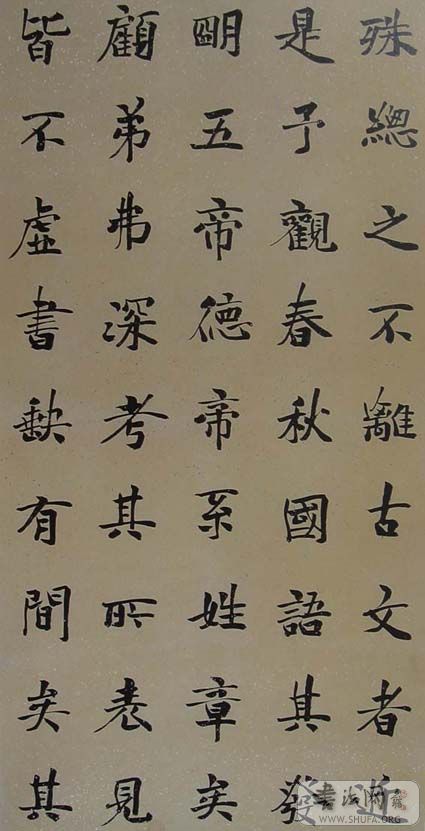 殊總之不離古文者近
是予觀春秋國語其發
明五帝德帝系姓章矣
顧弟弗深考其所表見
皆不虛書缺有間矣其
WWW.SHUFA.ORG